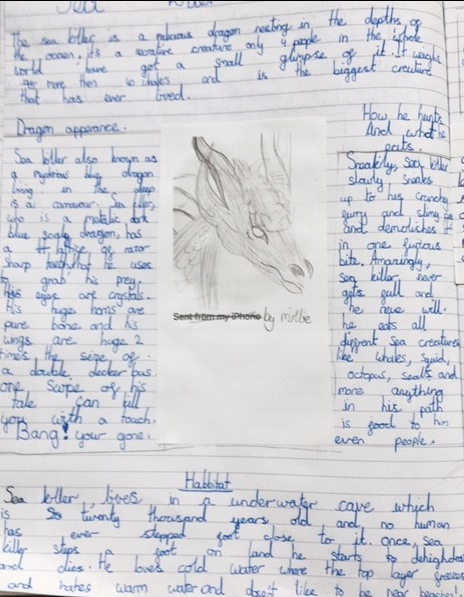 Sea Killer
The sea killer is a malicious dragon nesting in the depths of
the ocean, it's a secretive creature only 4 people in the whole
world have got a small glimpse of it. It weighs
more then 10 whales and is the biggest creature
that has ever lived.
Dragon apperance.
Sea killer also known as
a mysterious blue dragon
living in the deep
is a carnivour. Sea killer,
who is a metalic dark
blue scaly dragon, has
a lattice of razor
sharp teeth he uses
to grab his prey.
his eyes are crystals.
His huge horns are
pure bone and his
wings are huge 2
times the seize of
a double decker bus
one swipe of his
tale can kill
you with a touch.
Bang! your gone.
Sent from my iPhone by millie
How he hunts
And what he
eats.
Sneakily, Sea killer
slowly sneaks
up to his crunchy
furry and slimy
and demolishes it
in one furious
bite. Amazingly,
sea killer never
gets full and
he neve will.
he eats all
diffrent sea creatures
like whales, squid,
octopus, sealts and
more anything
in his path
is good to him
even people.
Habbitat
Sea killer, lives in a underwater cave which
is twenty thousand years old and no human
has ever stepped foot close to it. once, sea
killer steps a foot on land he starts to dehighdrate
and dies. He loves cold water where the top layer freezes
and hates warm water and does't like to be near beaches!